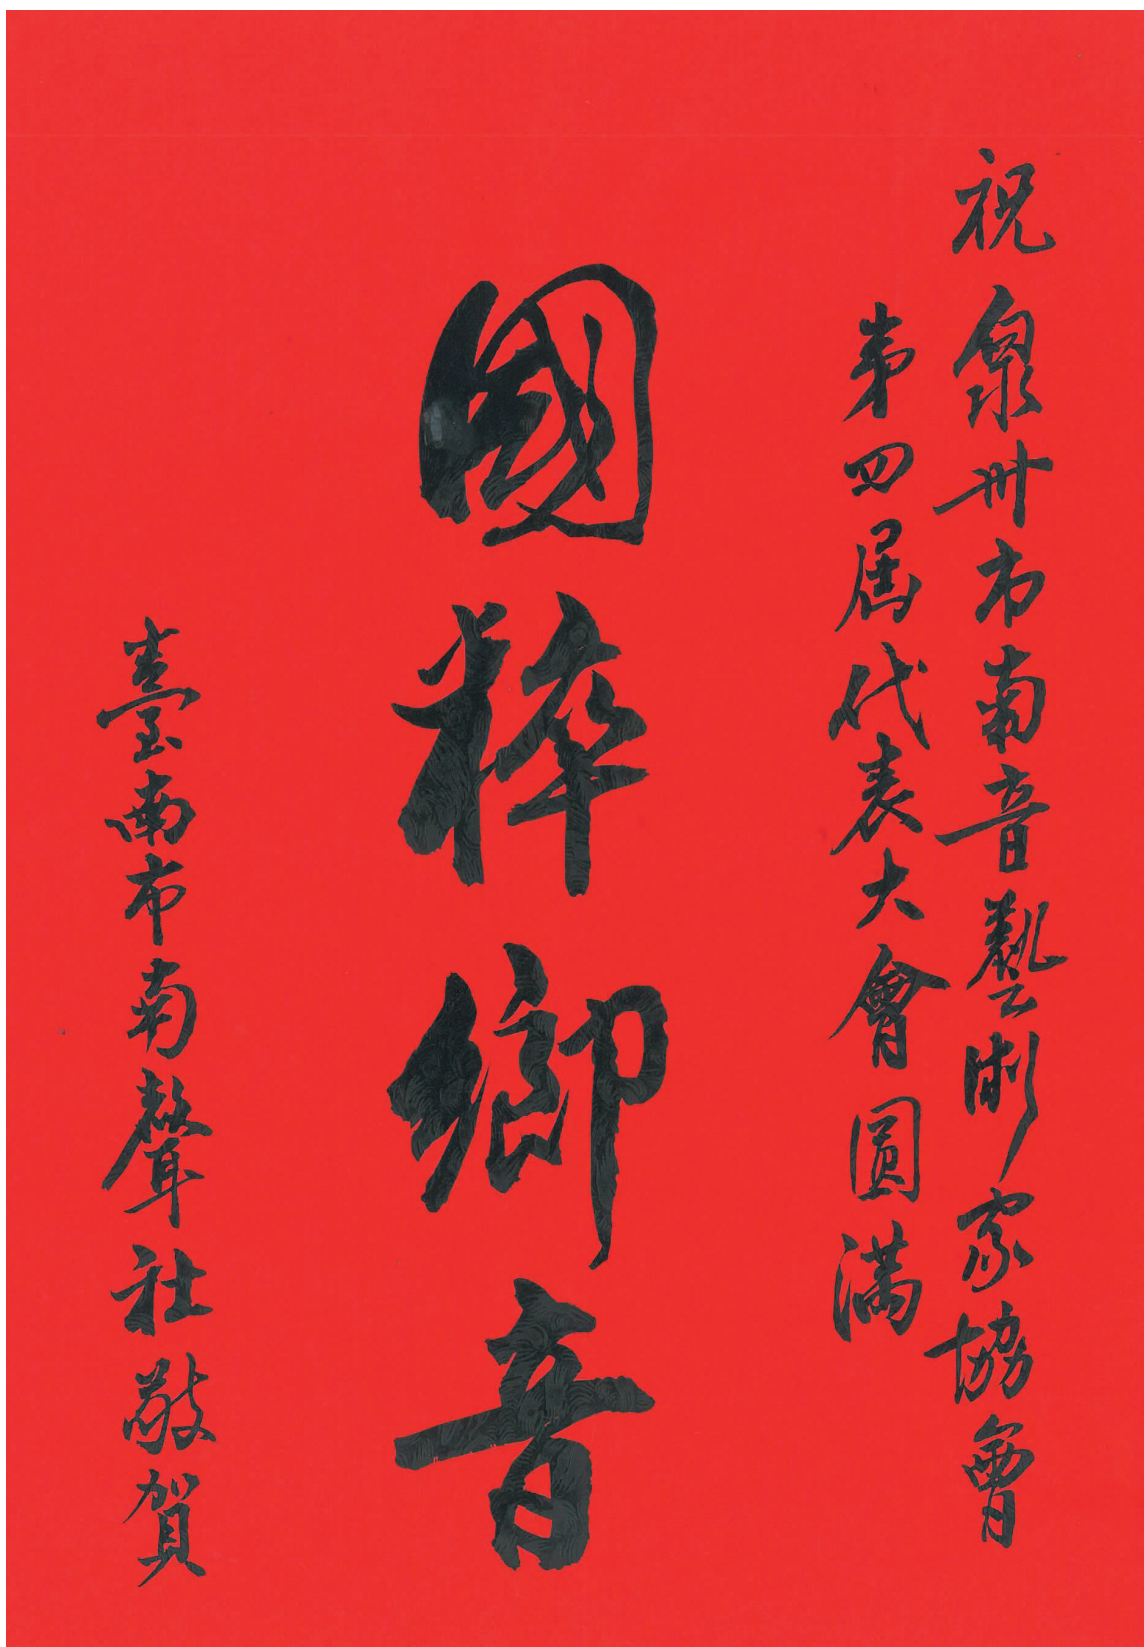 祝泉州市南音藝術家協會
第四屆代表大會圓滿
國粹鄉音
臺南市南聲社敬賀